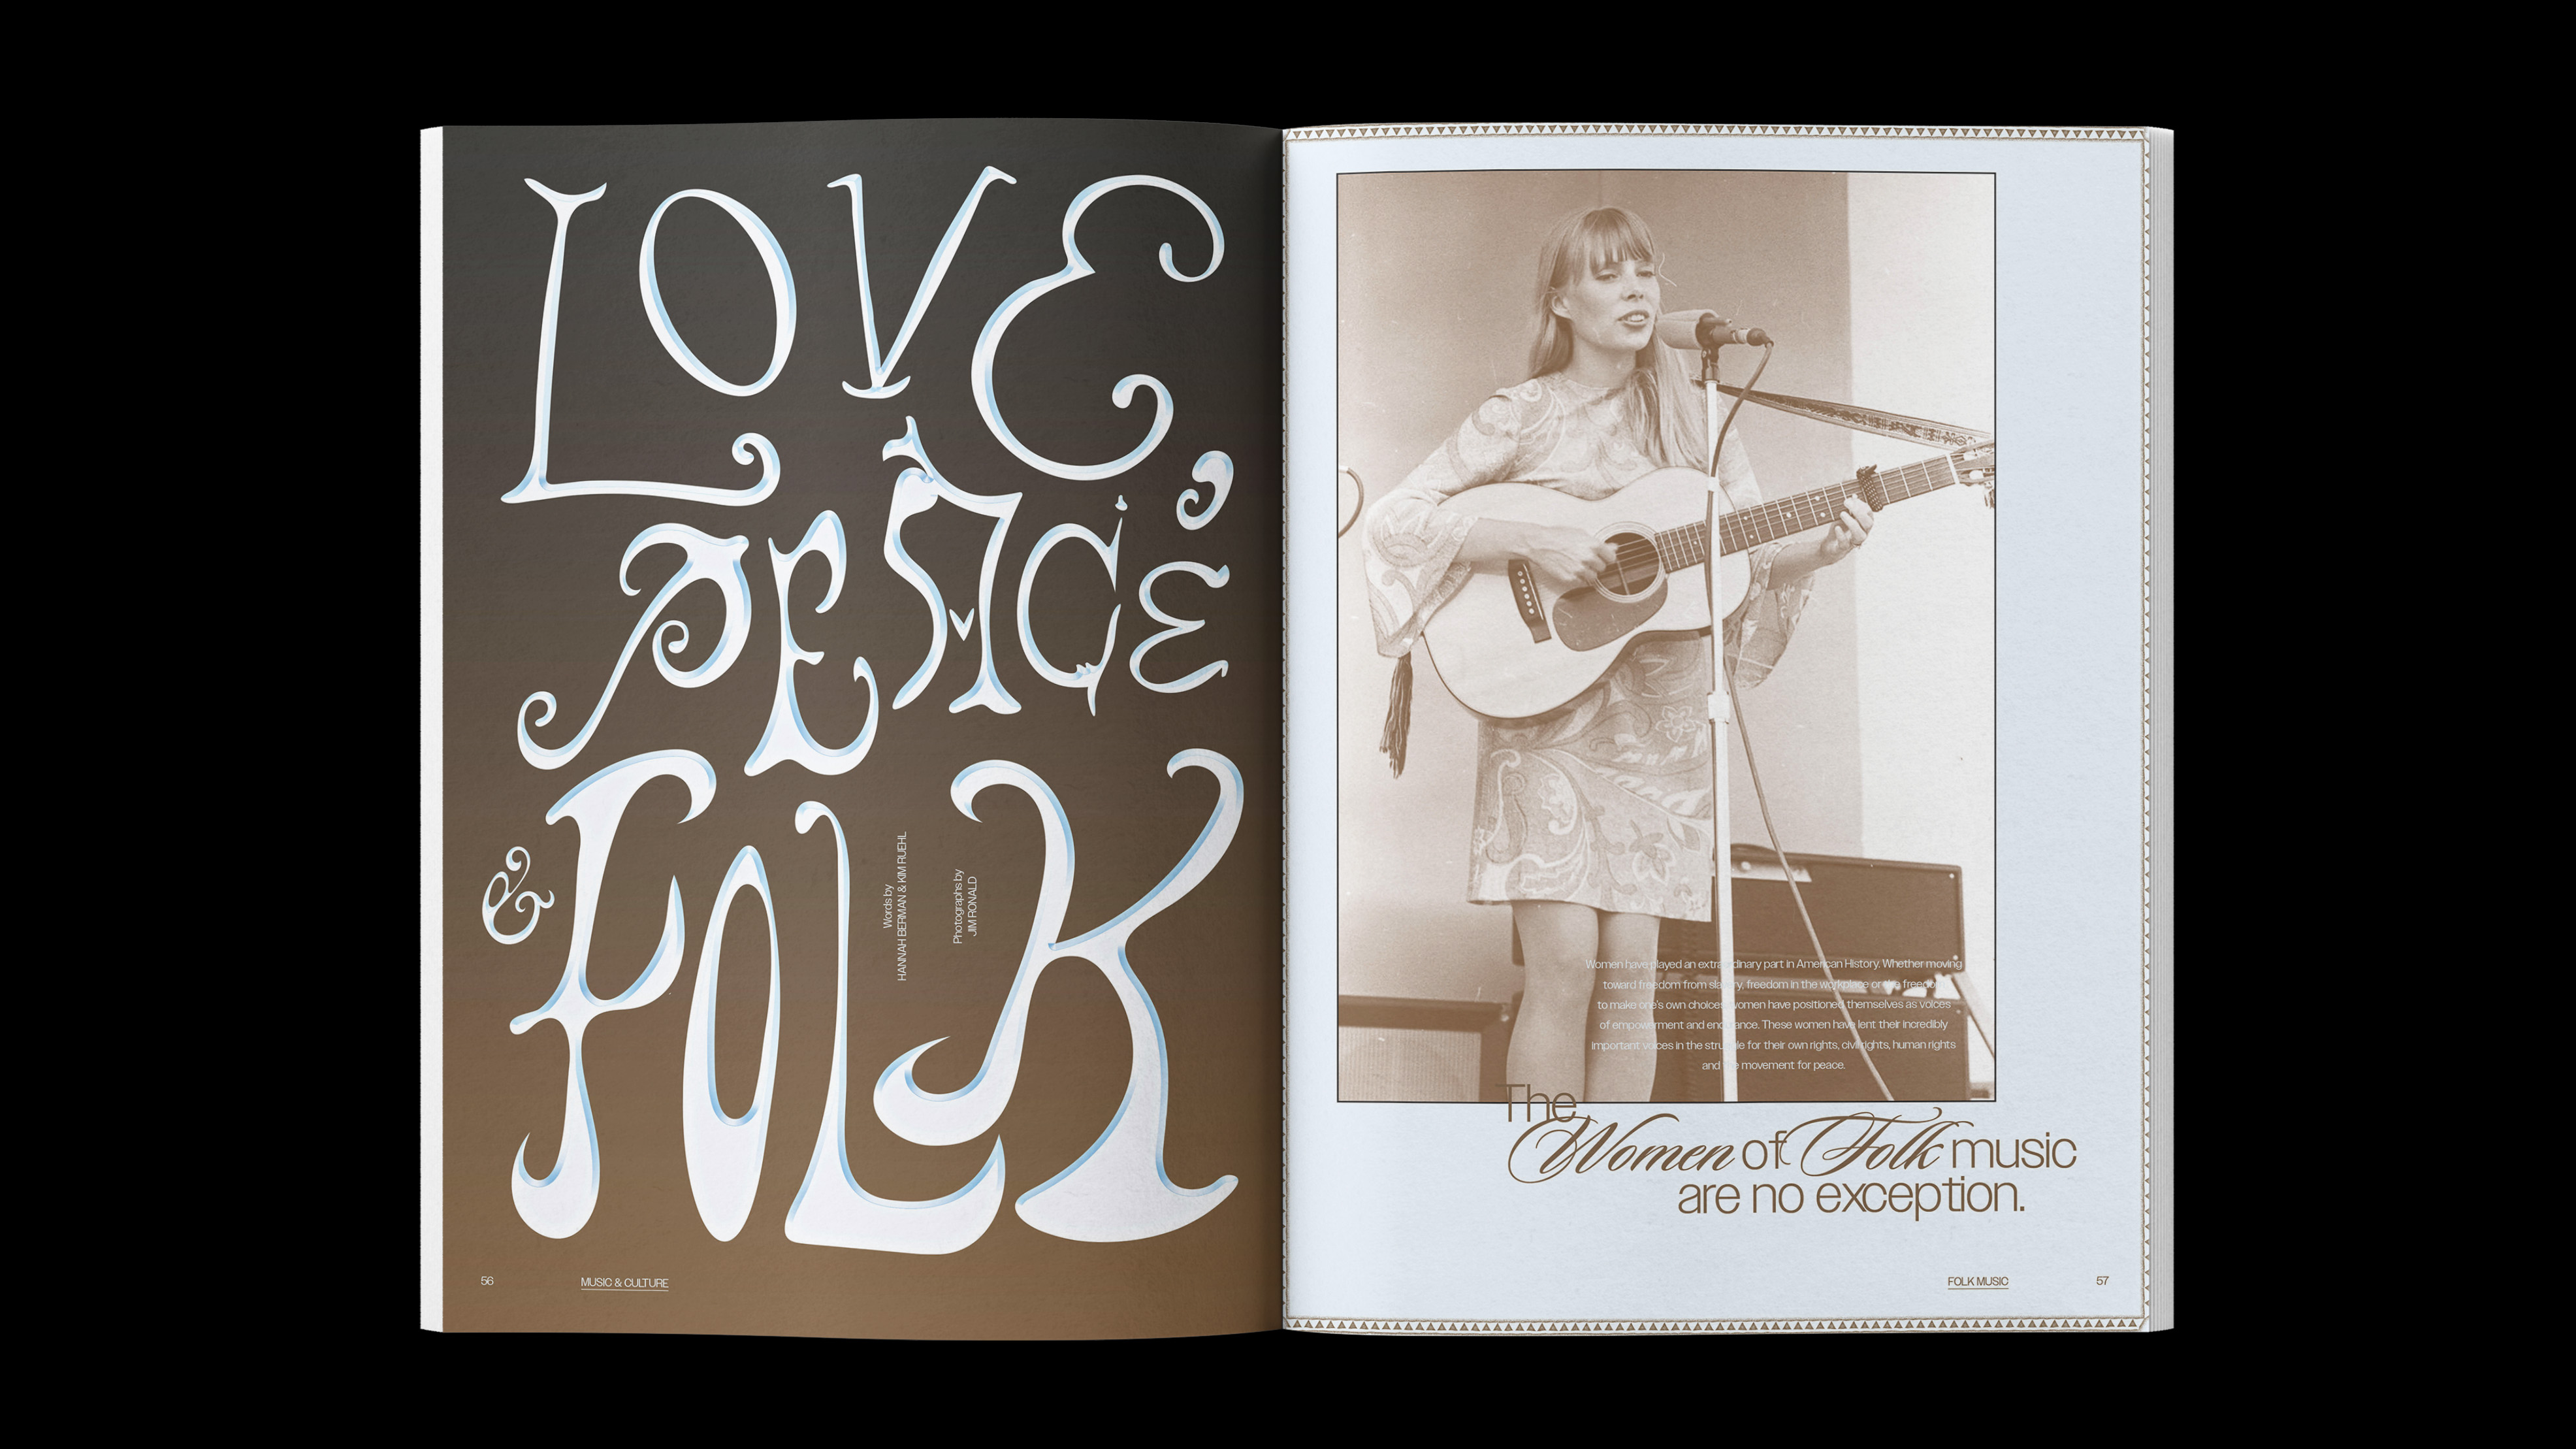 LOVE,
PEACE
& FOLK
Words by
HANNAH BERMAN & KIM RUEHL
Photographs by
JIM RONALD
56
MUSIC & CULTURE
Women have played an extraordinary part in American History. Whether moving
toward freedom from slavery, freedom in the workplace or the freedom
to make one's own choices, women have positioned themselves as voices
of empowerment and endurance. These women have lent their incredibly
important voices in the struggle for their own rights, civil rights, human rights
and the movement for peace.
The
Women of Folk music
are no exception.
FOLK MUSIC
57